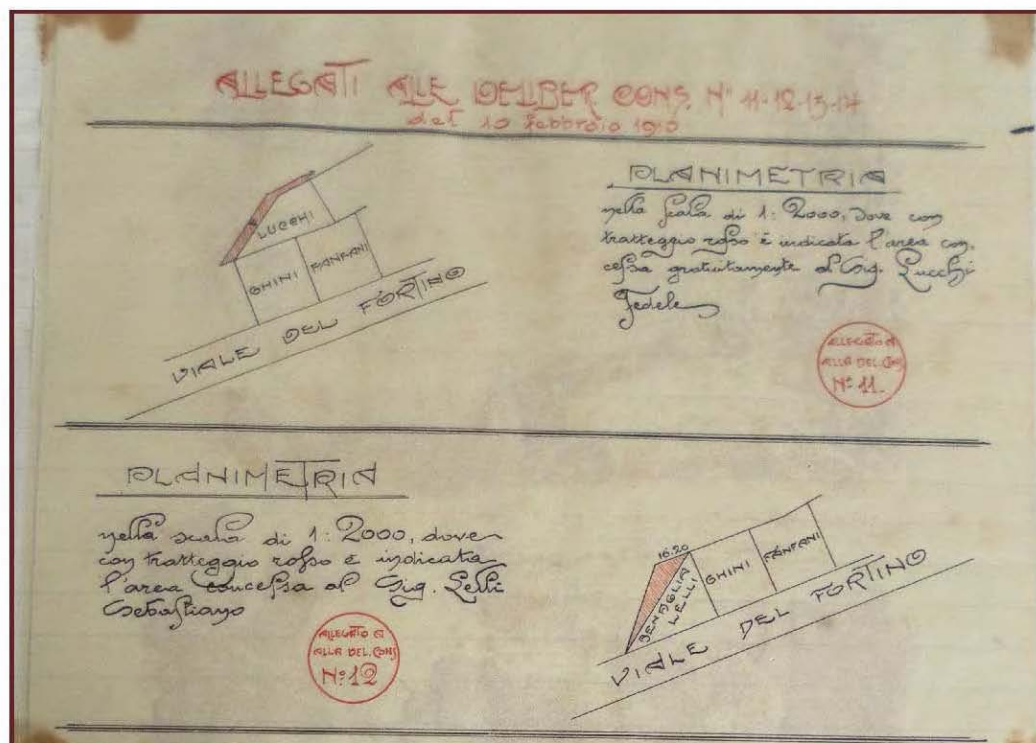 ALLEGATI ALLE DELIBER CONS. Nº 11-12-13-14
del 10 febbraio 1910
LUCCHI
GHINI
FANFANI
VIALE DEL FORTINO
PLANIMETRIA
nella scala di 1: 2000, dove con
tratteggio rosso è indicata l'area con-
cessa gratuitamente al Sig. Lucchi
Fedele
ALLEGATO A
ALLA DEL. CONS
Nº 11.
PLANIMETRIA
nella scala di 1: 2000, dove
con tratteggio rosso è indicata
l'area concessa al Sig. Lelli
Sebastiano
ALLEGATO A
ALLA DEL. CONS
Nº 12
16.20
LELLI
GHINI
FANFANI
VIALE DEL FORTINO